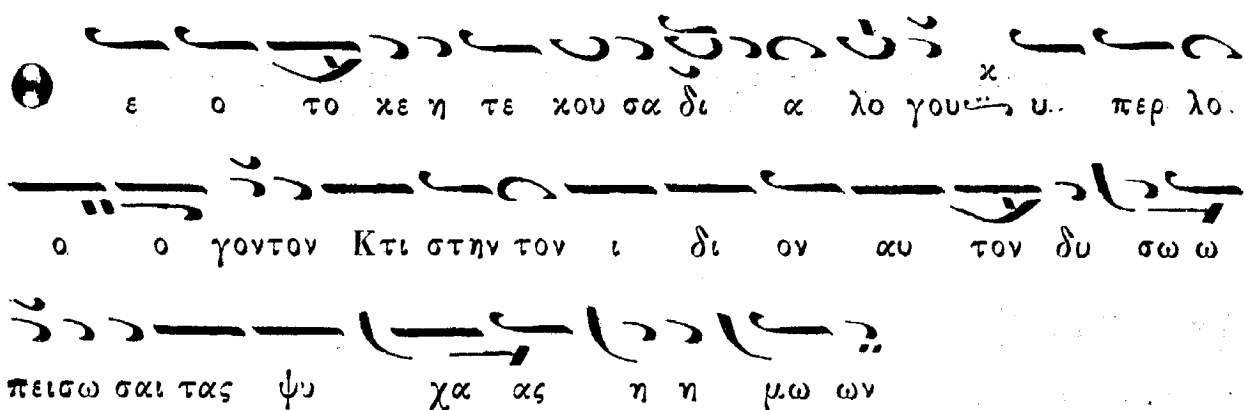 Θ ε ο το κε η τε κου σα δι α λο γου υ. περ λο.
ο ο γοντον Κτι στην τον ι δι ον αυ τον δυ σω ω
πεισω σαι τας ψυ χα ας η η μω ων